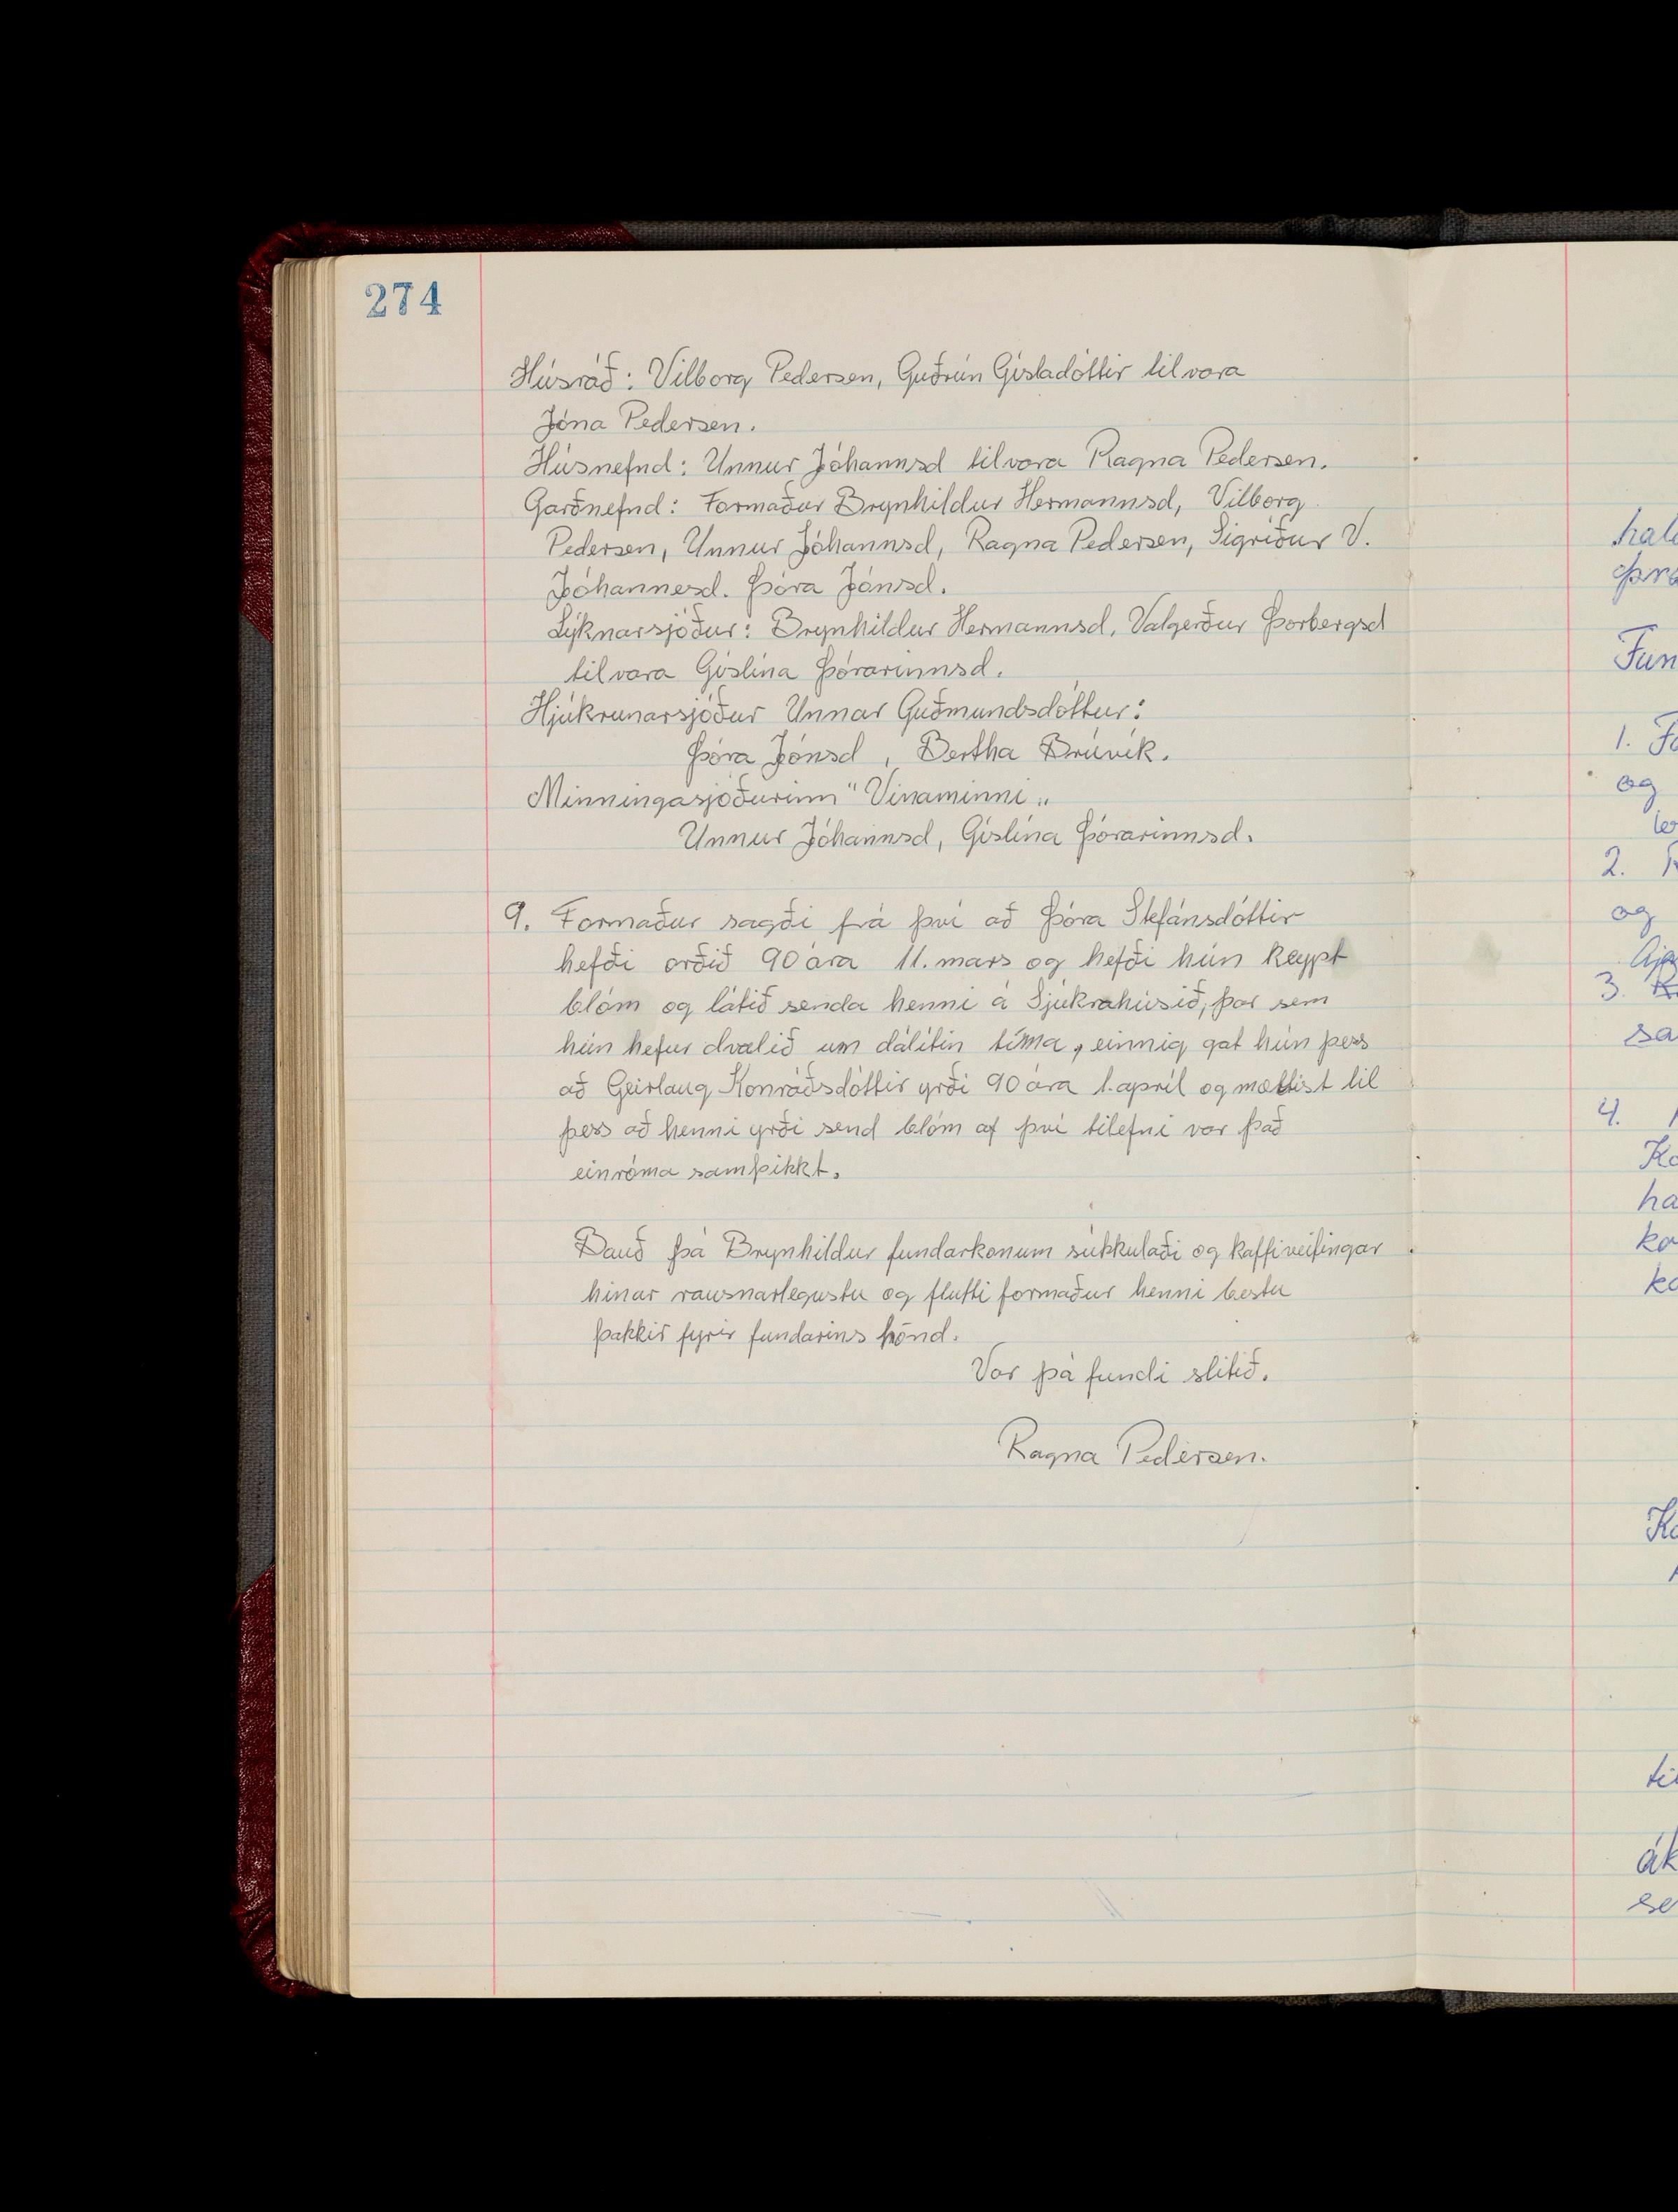 274
Húsráð: Vilborg Pedersen, Guðrún Gísladóttir til vara
Jóna Pedersen.
Húsnefnd: Unnur Jóhannsd til vara Ragna Pedersen.
Garðnefnd: Formaður Brynhildur Hermannsd, Vilborg
Pedersen, Unnur Jóhannsd, Ragna Pedersen, Sigríður V.
Jóhannesd. Þóra Jónsd.
Lýknarsjóður: Brynhildur Hermannsd, Valgerður Þorbergsd
til vara Gíslína Þórarinnsd.
Hjúkrunarsjóður Unnar Guðmundsdóttur:
Þóra Jónsd, Bertha
Minningasjóðurinn "Vinaminni"
Unnur Jóhannsd, Gíslína Þórarinnsd.
9. Formaður sagði frá því að Þóra Stefánsdóttir
hefði orðið 90 ára 11. mars og hefði hún keypt
blóm og látið senda henni á Sjúkrahúsið, þar sem
hún hefur dvalið um dálitin tíma, einnig gat hún þess
að Geirlaug Konráðsdóttir yrði 90 ára 1. apríl og mæltist til
þess að henni yrði send blóm af því tilefni var það
einróma samþikkt.
Bauð þá Brynhildur fundarkonum súkkulaði og kaffiveitingar
hinar rausnarlegustu og flutti formaður henni bestu
þakkir fyrir fundarins hönd.
Var þá fundi slitið.
Ragna Pedersen.
Fun
1.
og
2.
og
3.
4.